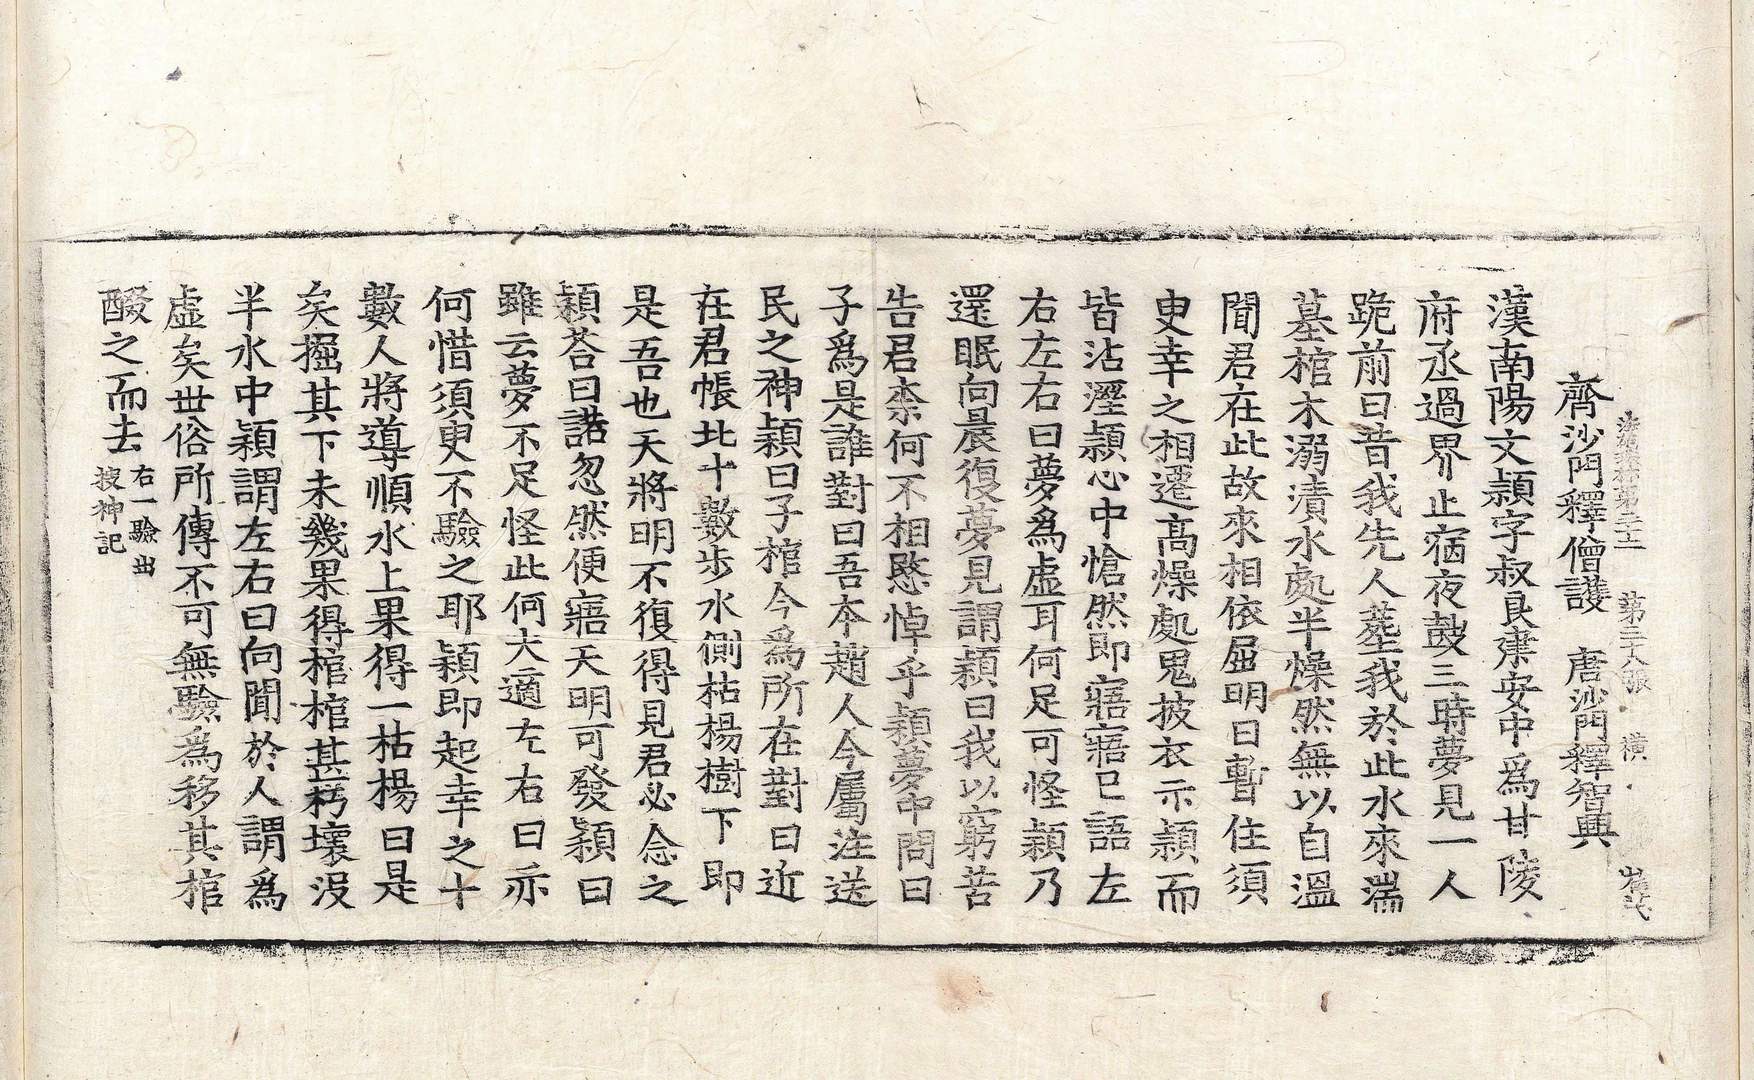 法苑珠林第三十二 第三十八張 横
齊沙門釋僧護 唐沙門釋智興
漢南陽文頴字叔良建安中爲甘陵
府丞過界止宿夜鼓三時夢見一人
跪前曰昔我先人葬我於此水來湍
墓棺木溺漬水處半燥然無以自溫
聞君在此故來相依屈明日暫住須
臾幸之相遷高燥處鬼披衣示頴而
皆沾溼頴心中愴然即寤寤已語左
右左右曰夢爲虛耳何足可怪頴乃
還眠向晨復夢見謂頴曰我以窮苦
告君柰何不相愍悼乎頴夢中問曰
子爲是誰對曰吾本趙人今屬注送
民之神頴曰子棺今爲所在對曰近
在君帳北十數步水側枯楊樹下即
是吾也天將明不復得見君必念之
頴荅曰諾忽然便寤天明可發頴曰
雖云夢不足怪此何大適左右曰亦
何惜須臾不驗之耶頴即起幸之十
數人將導順水上果得一枯楊曰是
矣掘其下未幾果得棺棺甚朽壞沒
半水中頴謂左右曰向聞於人謂爲
虛矣世俗所傳不可無驗爲移其棺
醊之而去
右一驗出
搜神記